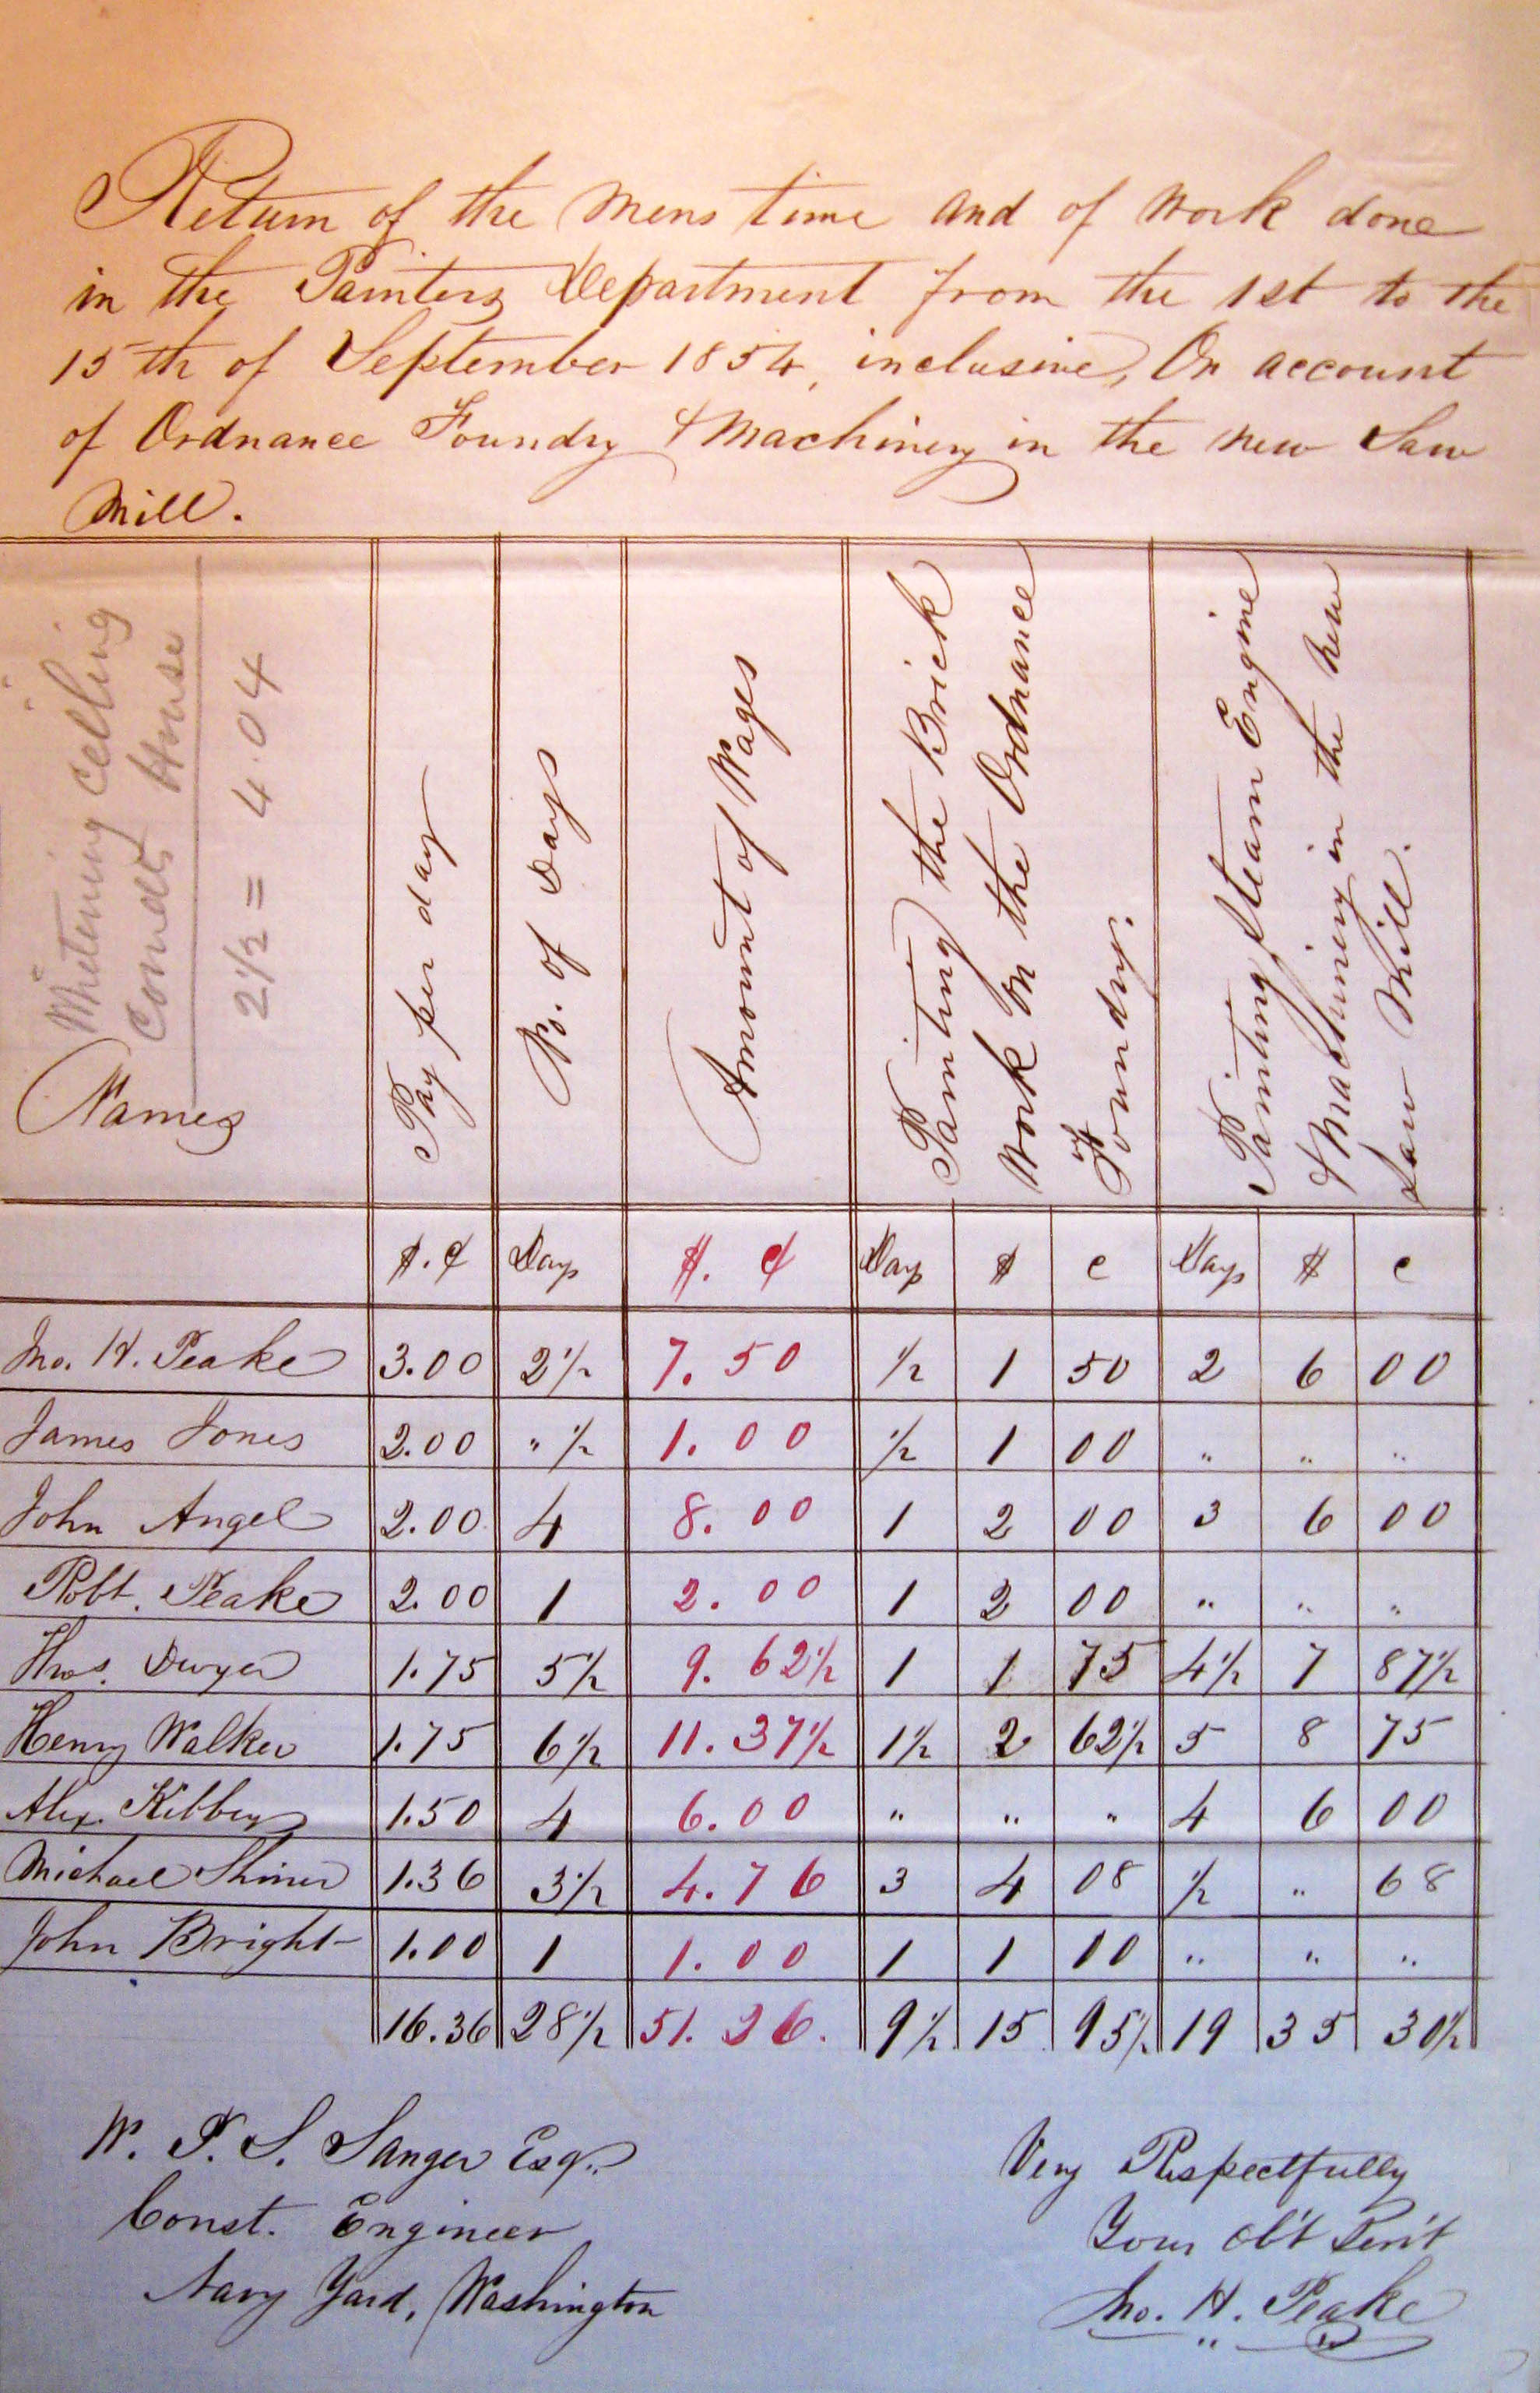 Return of the mens time and of work done
in the Painters Department from the 1st to the
15th of September 1854, inclusive, On account
of Ordnance Foundry & Machinery in the new Saw
Mill.
Whitening Celling
Comdts House
2½ = 4.04
Names
Pay per day
No. of Days
Amount of Wages
Painting the Brick
Work on the Ordnance
Foundry.
Painting Steam Engine
& Machinery in the new
Saw Mill.
$. ¢ Days $. ¢ Days $ c Days $ c
Jno. H. Peake 3.00 2½ 7.50 ½ 1 50 2 6 00
James Jones 2.00 " ½ 1.00 ½ 1 00 " " "
John Angel 2.00 4 8.00 1 2 00 3 6 00
Robt. Peake 2.00 1 2.00 1 2 00 " " "
Thos. Dwyer 1.75 5½ 9.62½ 1 1 75 4½ 7 87½
Henry Walker 1.75 6½ 11.37½ 1½ 2 62½ 5 8 75
Alex. Kibbey 1.50 4 6.00 " " " 4 6 00
Michael Shiner 1.36 3½ 4.76 3 4 08 ½ " 68
John Bright 1.00 1 1.00 1 1 00 " " "
16.36 28½ 51.26. 9½ 15 95½ 19 35 30½
W. P. S. Sanger Esqr.
Const. Engineer
Navy Yard, Washington
Very Respectfully
Your Obt Servt
Jno. H. Peake